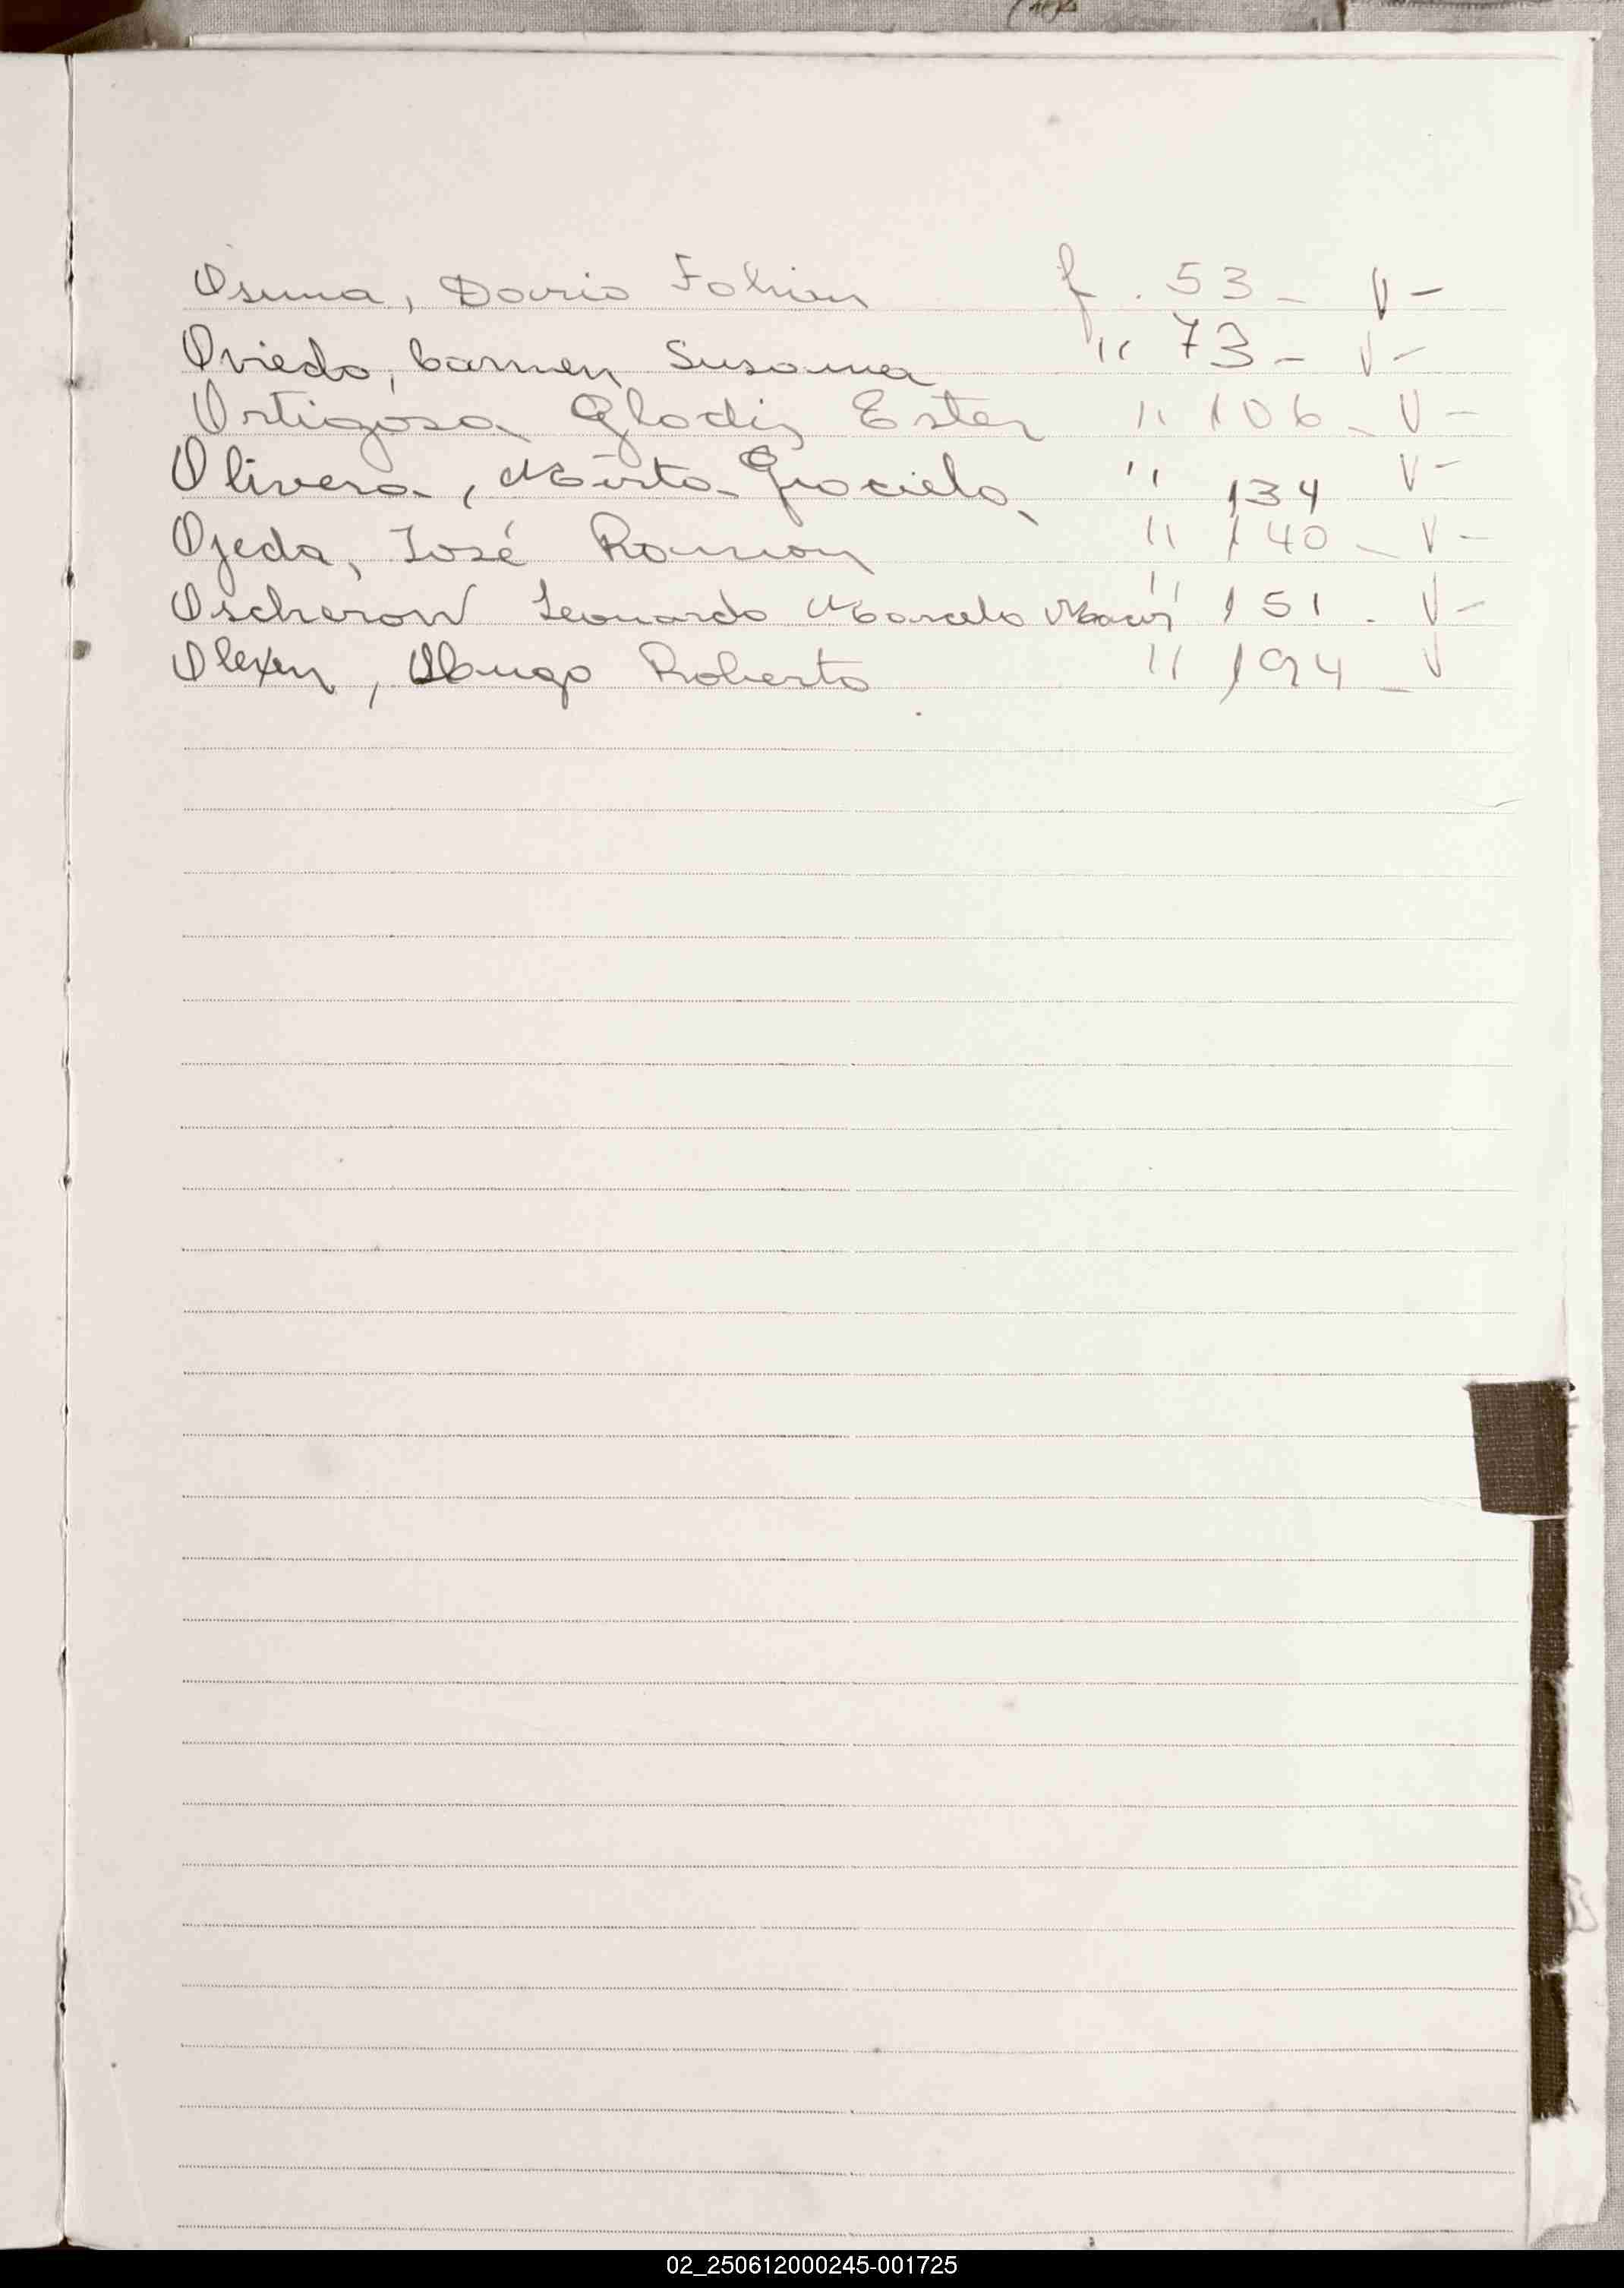 Osuna, Dario Fabian f. 53 - V -
Oviedo, Carmen Susana " 73 - V -
Ortigosa Gladis Ester " 106 - V -
Olivera, Mirta Graciela " 134 V -
Ojeda, José Ramon " 140 - V -
Oscherow Leonardo Marcelo " 151 . V -
Olexen, Hugo Roberto " 194 - V
02_250612000245-001725